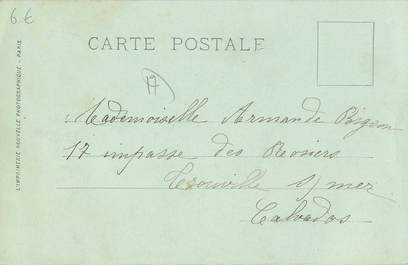 6€
CARTE POSTALE
17
Mademoiselle Armande Bigion
17 impasse des Rosiers
Trouville s/ mer
Calvados
L'IMPRIMERIE NOUVELLE PHOTOGRAPHIQUE - PARIS